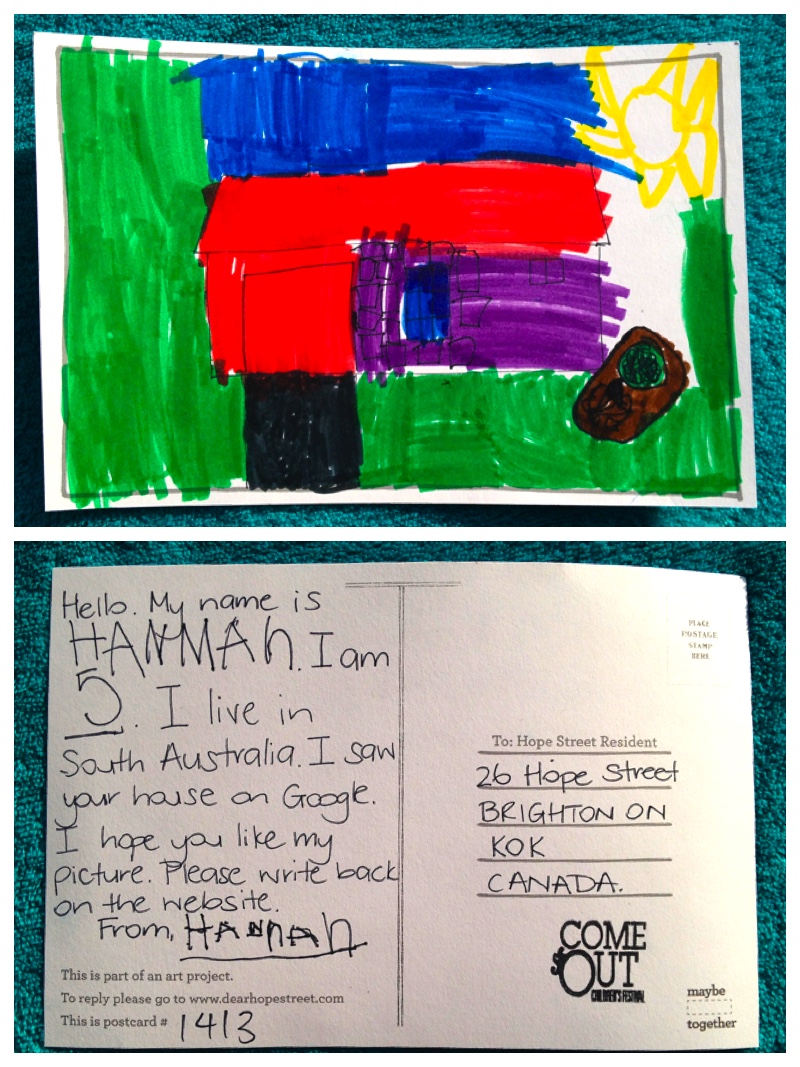 Hello. My name is
HANNAh. I am
5. I live in
South Australia. I saw
your house on Google.
I hope you like my
picture. Please write back
on the website.
From, HANNAh
This is part of an art project.
To reply please go to www.dearhopestreet.com
This is postcard # 1413
PLACE
POSTAGE
STAMP
HERE
To: Hope Street Resident
26 Hope Street
BRIGHTON ON
KOK
CANADA.
COME
OUT
CHILDREN'S FESTIVAL
maybe
together